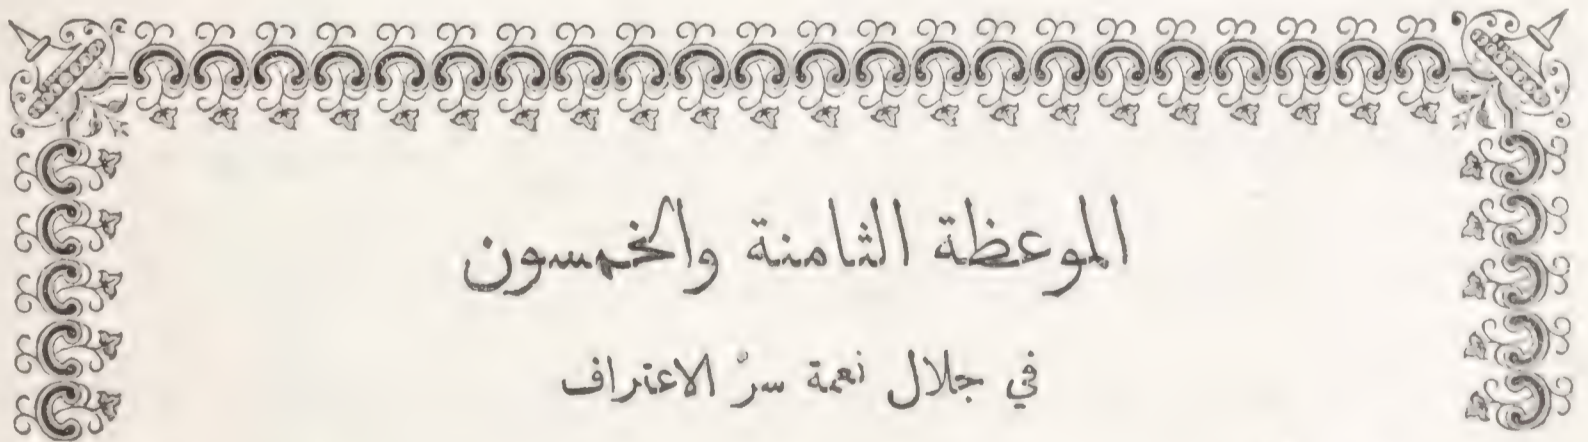 الموعظة الثامنة والخمسون
في جلال نعمة سرّ الاعتراف